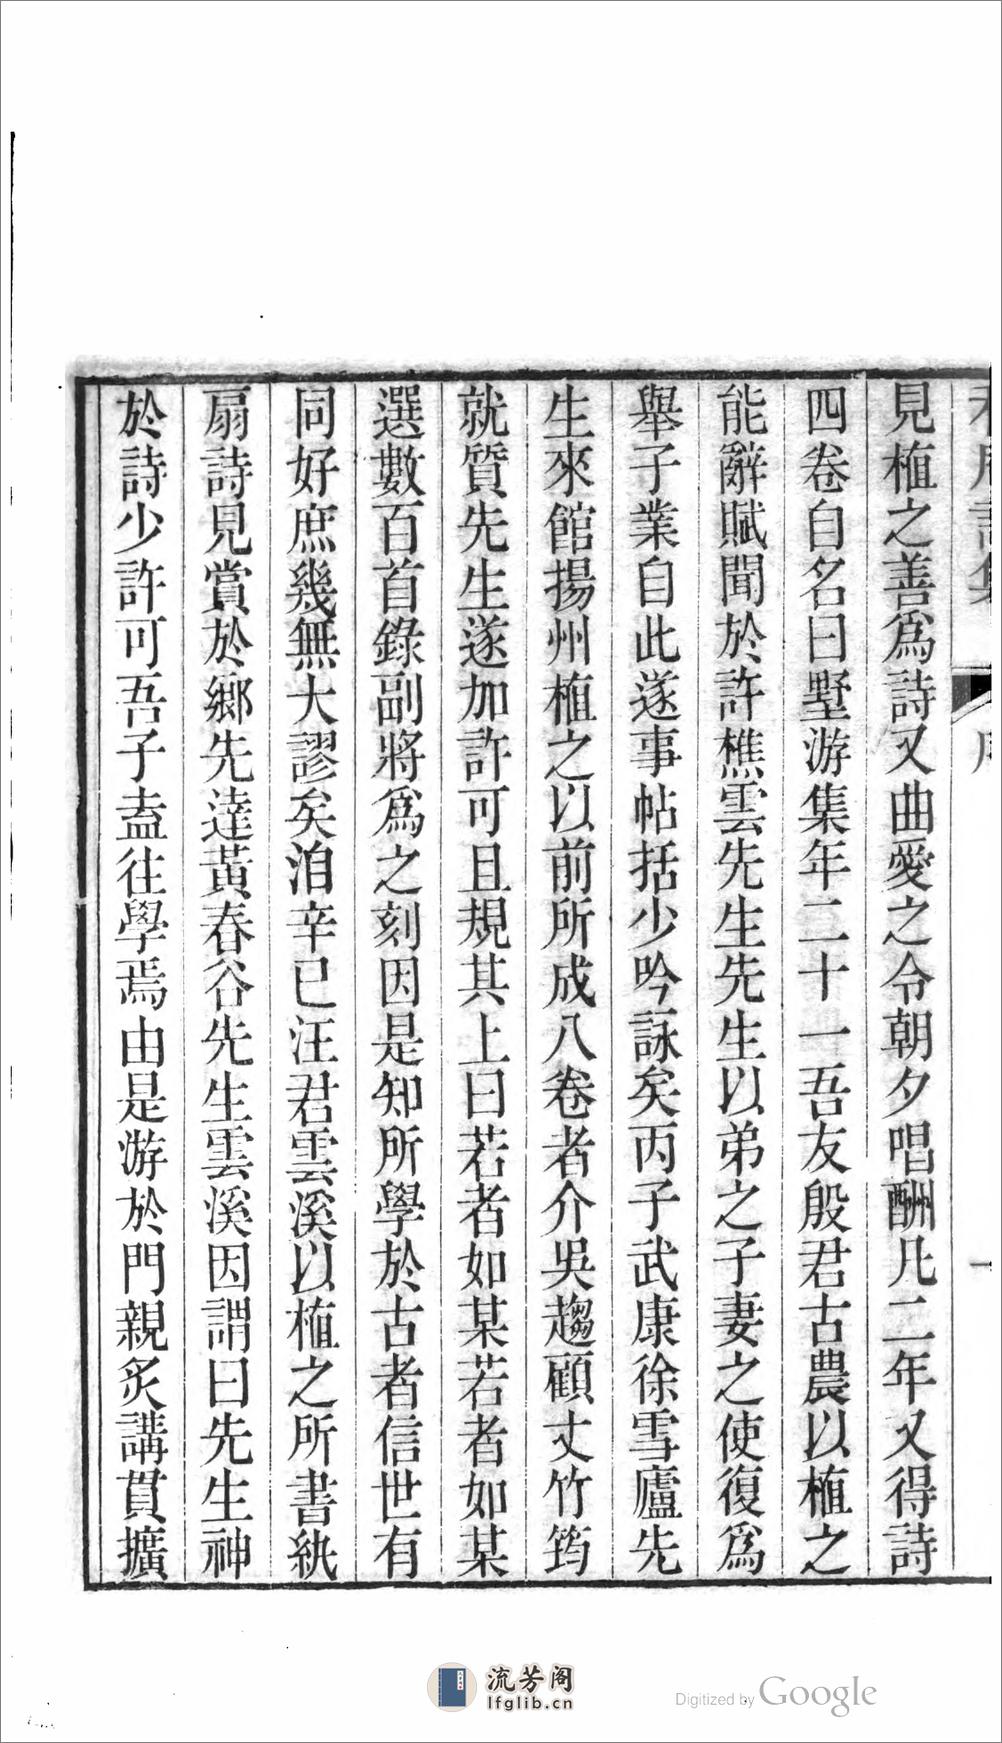 見植之善為詩又曲愛之令朝夕唱酬凡二年又得詩
四卷自名曰墅游集年二十一吾友殷君古農以植之
能辭賦聞於許樵雲先生先生以弟之子妻之使復為
舉子業自此遂事帖括少吟詠矣丙子武康徐雪廬先
生來館揚州植之以前所成八卷者介吳趨顧丈竹筠
就質先生遂加許可且規其上曰若者如某若者如某
選數百首錄副將為之刻因是知所學於古者信世有
同好庶幾無大謬矣洎辛巳汪君雲溪以植之所書紈
扇詩見賞於鄉先達黃春谷先生雲溪因謂曰先生神
於詩少許可吾子盍往學焉由是游於門親炙講貫擴
流芳阁
lfglib.cn
Digitized by Google